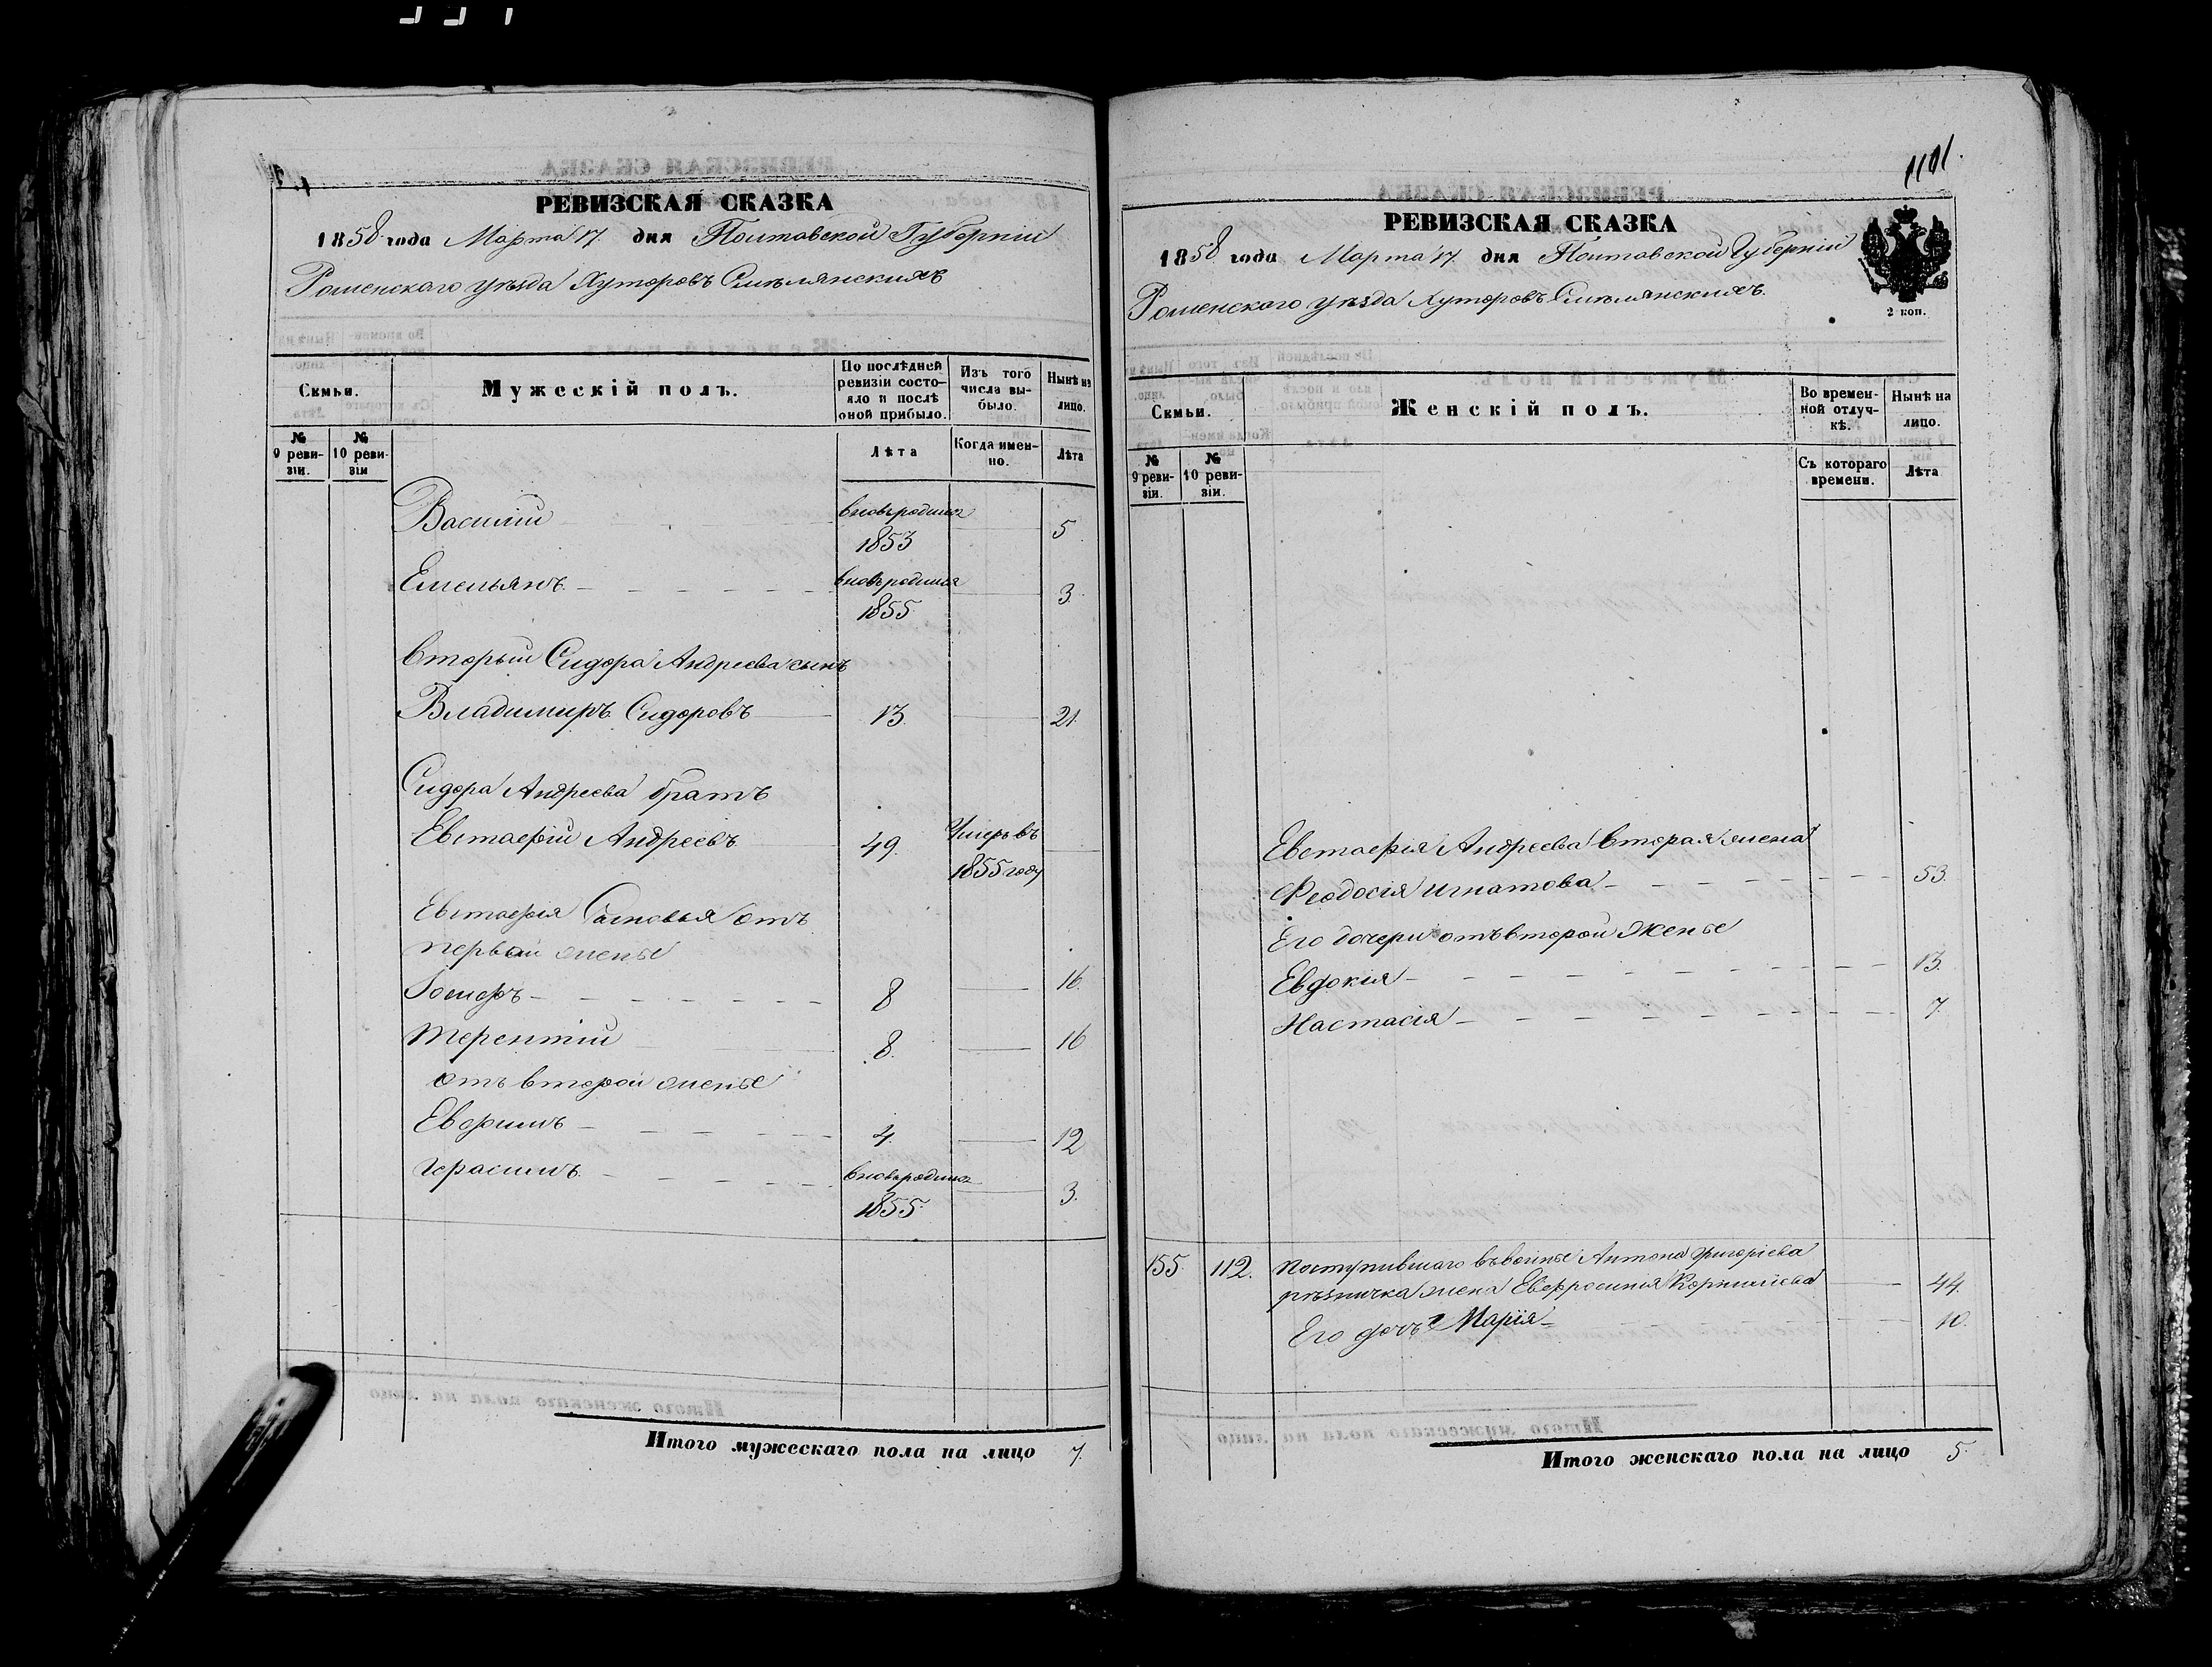 РЕВИЗСКАЯ СКАЗКА
1858 года Марта 17. дня Полтавской Губернiи
Роменскаго уѣзда Хуторовъ Смѣлянскихъ
Семьи.
Мужескiй полъ.
По послѣдней ревизiи состояло и послѣ оной прибыло.
Изъ того числа выбыло.
Нынѣ на лицо.
№ 9 ревизiи.
№ 10 ревизiи
Лѣта
Когда именно.
Лѣта
Василiй вновьродился 1853 5
Емельянъ вновьродился 1855 3.
вторый Сидора Андреева сынъ
Владимиръ Сидоровъ 13. 21.
Сидора Андреева братъ
Евстафiй Андреевъ 49. Умеръ въ 1855 году
Евстафiя Сыновья отъ
первой жены
Iосифъ 8 16.
Терентiй 8. 16
отъ второй жены
Евфимъ 4. 12
Герасимъ. вновьродился 1855. 3.
Итого мужескаго пола на лицо 7.
1101.
РЕВИЗСКАЯ СКАЗКА
1858 года Марта 17. дня Полтавской Губернiи
Роменскаго уѣзда Хуторовъ Смѣлянскихъ.
2 коп.
Семьи.
Женскiй полъ.
Во временной отлучкѣ.
Нынѣ на лицо.
№ 9 ревизiи.
№ 10 ревизiи.
Съ котораго времени.
Лѣта
Евстафiя Андреева вторая жена
Феодосiя Игнатова 53.
Его дочери отъ второй жены
Евдокiя 13.
Настасiя 7.
155. 112. Поступившаго въ Антона Григорiева
жена Евфросинiя Корнилiева 44.
Его дочь Марiя 10.
Итого женскаго пола на лицо 5.